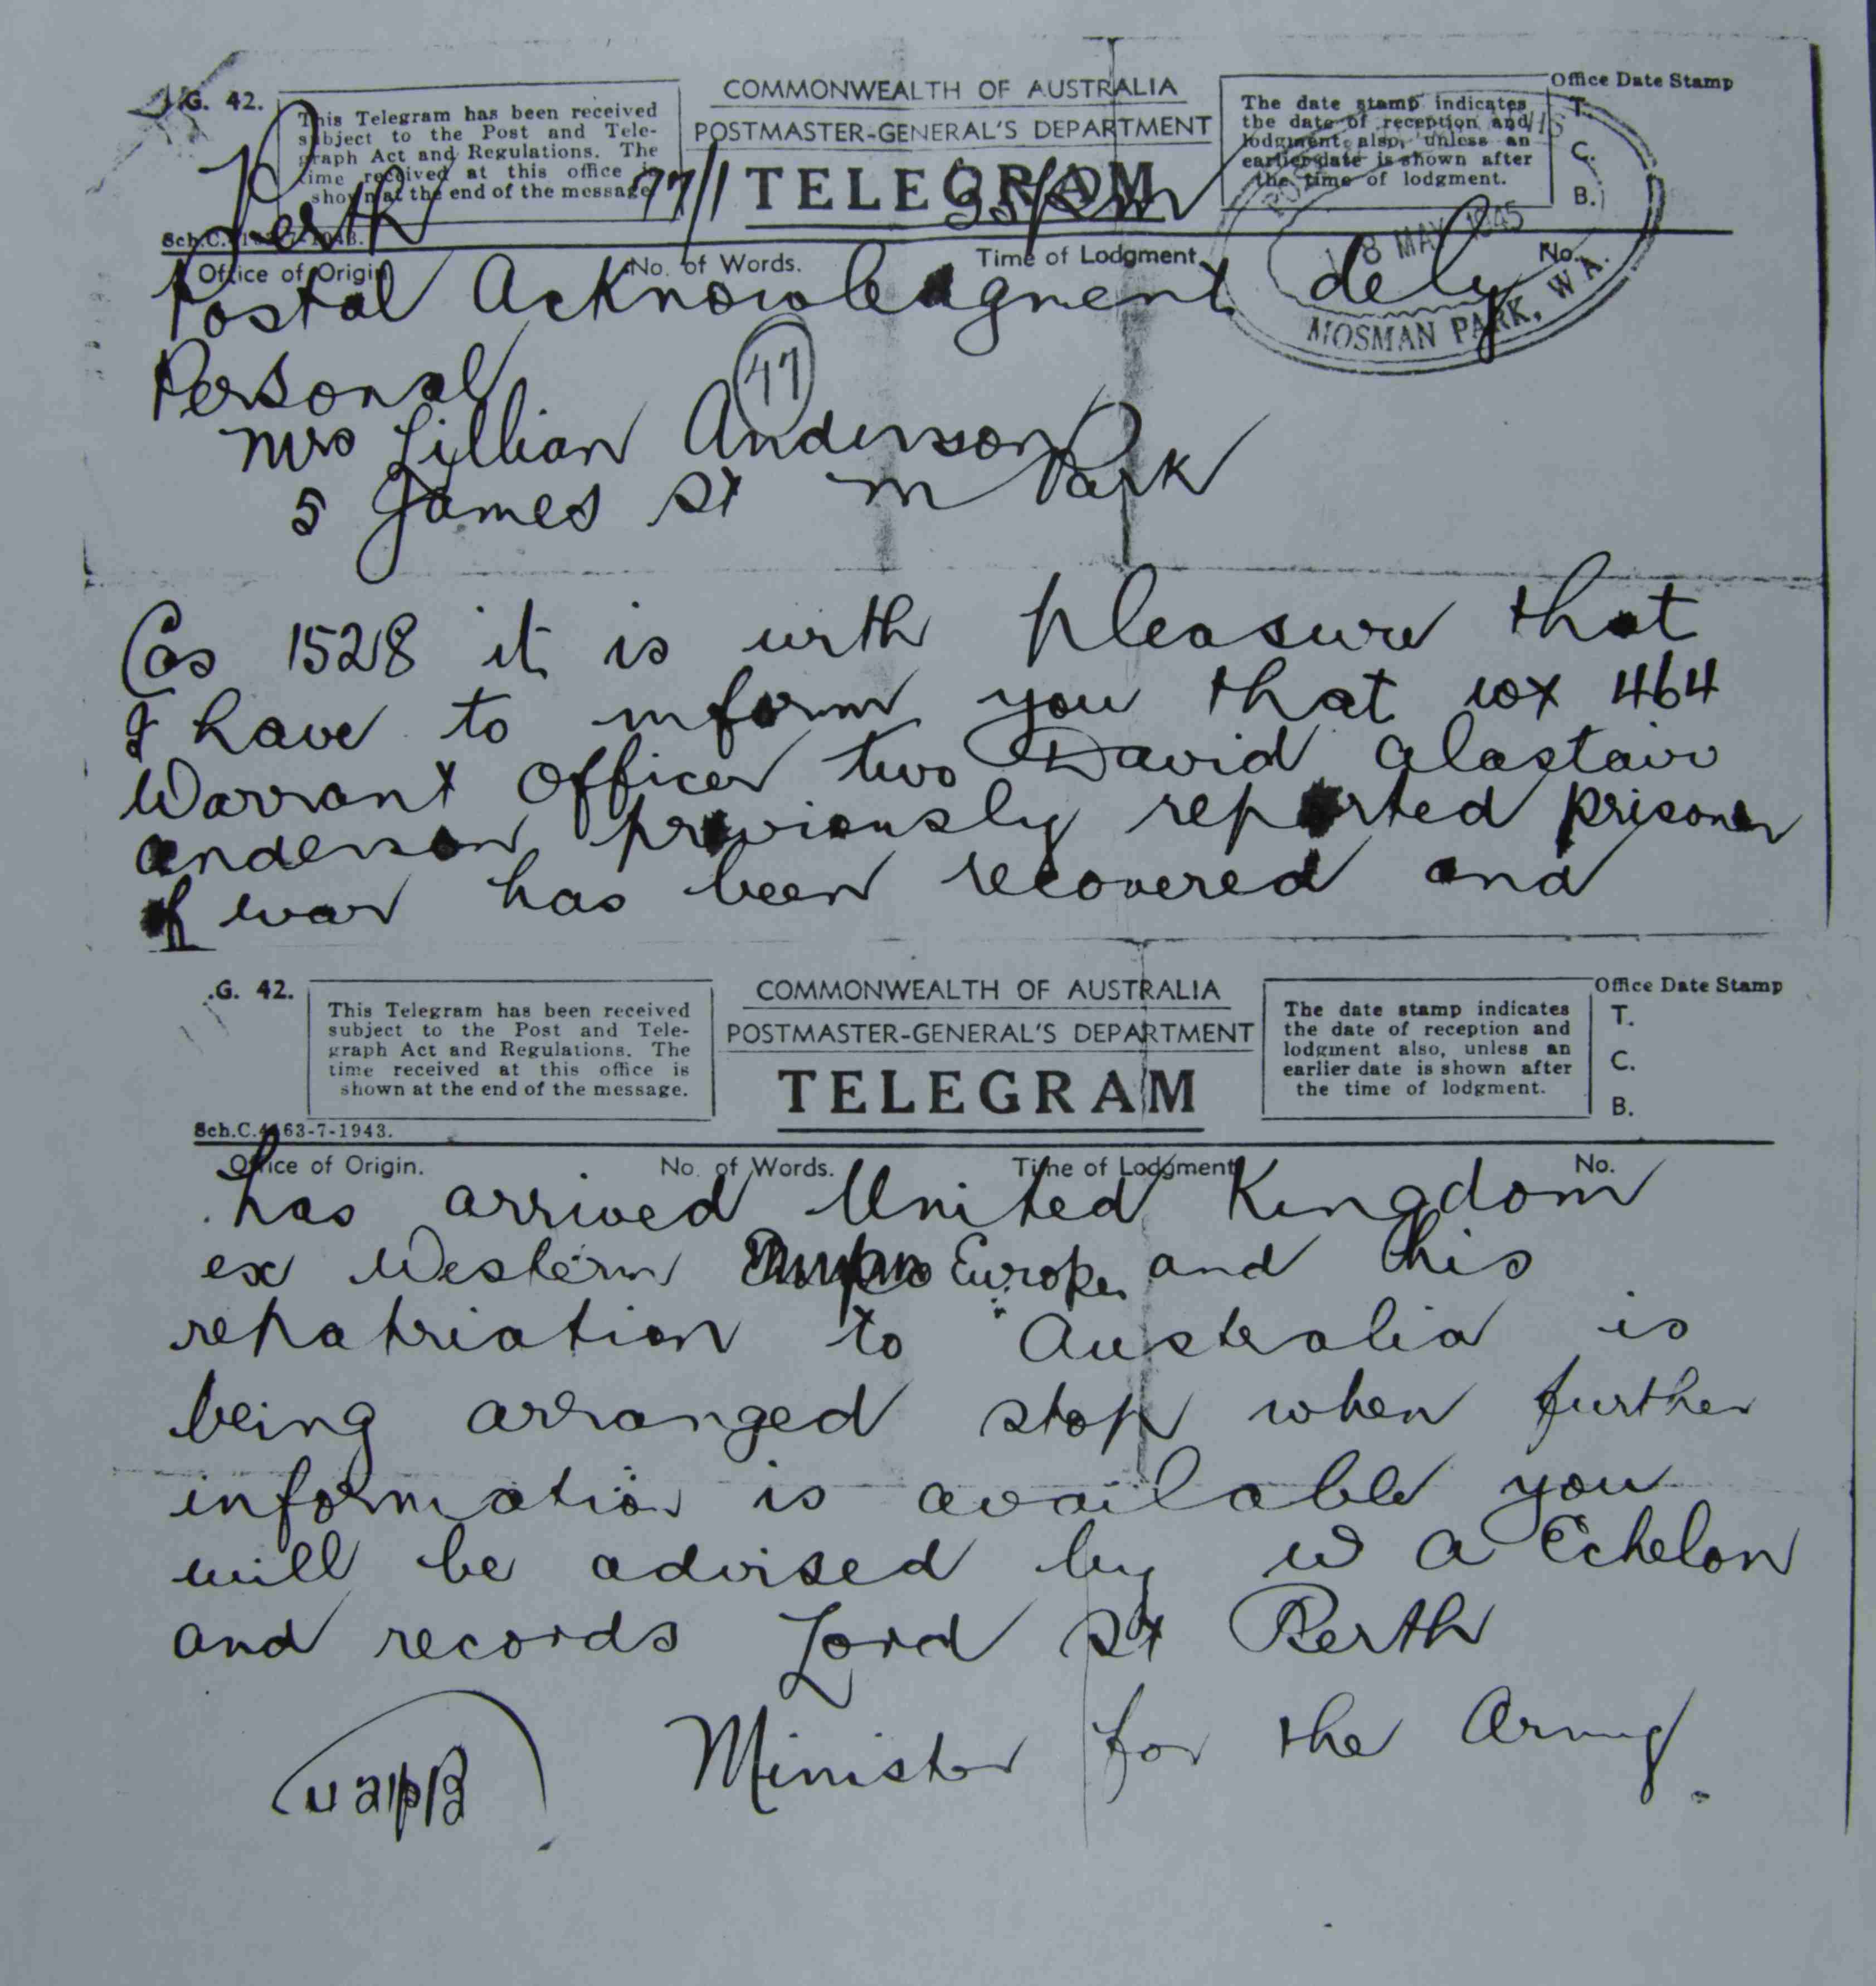 .G. 42.
This Telegram has been received
subject to the Post and Tele-
graph Act and Regulations. The
time received at this office is
shown at the end of the message.
COMMONWEALTH OF AUSTRALIA
POSTMASTER-GENERAL'S DEPARTMENT
TELEGRAM
The date stamp indicates
the date of reception and
lodgment also, unless an
earlier date is shown after
the time of lodgment.
Office Date Stamp
T.
C.
B.
8 MAY 1945
MOSMAN PARK, W.A.
Perth 77/1
Office of Origin. No. of Words. Time of Lodgment. No.
Postal Acknowledgment dely
Personal
47
Mrs Lillian Anderson
5 James St M Park
Cas 1528 it is with pleasure that
I have to inform you that wx 464
Warrant Officer two David alastair
anderson previously reported prisoner
of war has been recovered and
.G. 42.
This Telegram has been received
subject to the Post and Tele-
graph Act and Regulations. The
time received at this office is
shown at the end of the message.
COMMONWEALTH OF AUSTRALIA
POSTMASTER-GENERAL'S DEPARTMENT
TELEGRAM
The date stamp indicates
the date of reception and
lodgment also, unless an
earlier date is shown after
the time of lodgment.
Office Date Stamp
T.
C.
B.
Sch.C.4163-7-1943.
Office of Origin. No. of Words. Time of Lodgment. No.
has arrived United Kingdom
ex Western Europe and his
repatriation to Australia is
being arranged stop when further
information is available you
will be advised by W A Echelon
and records Lord St Perth
Minister for the Army